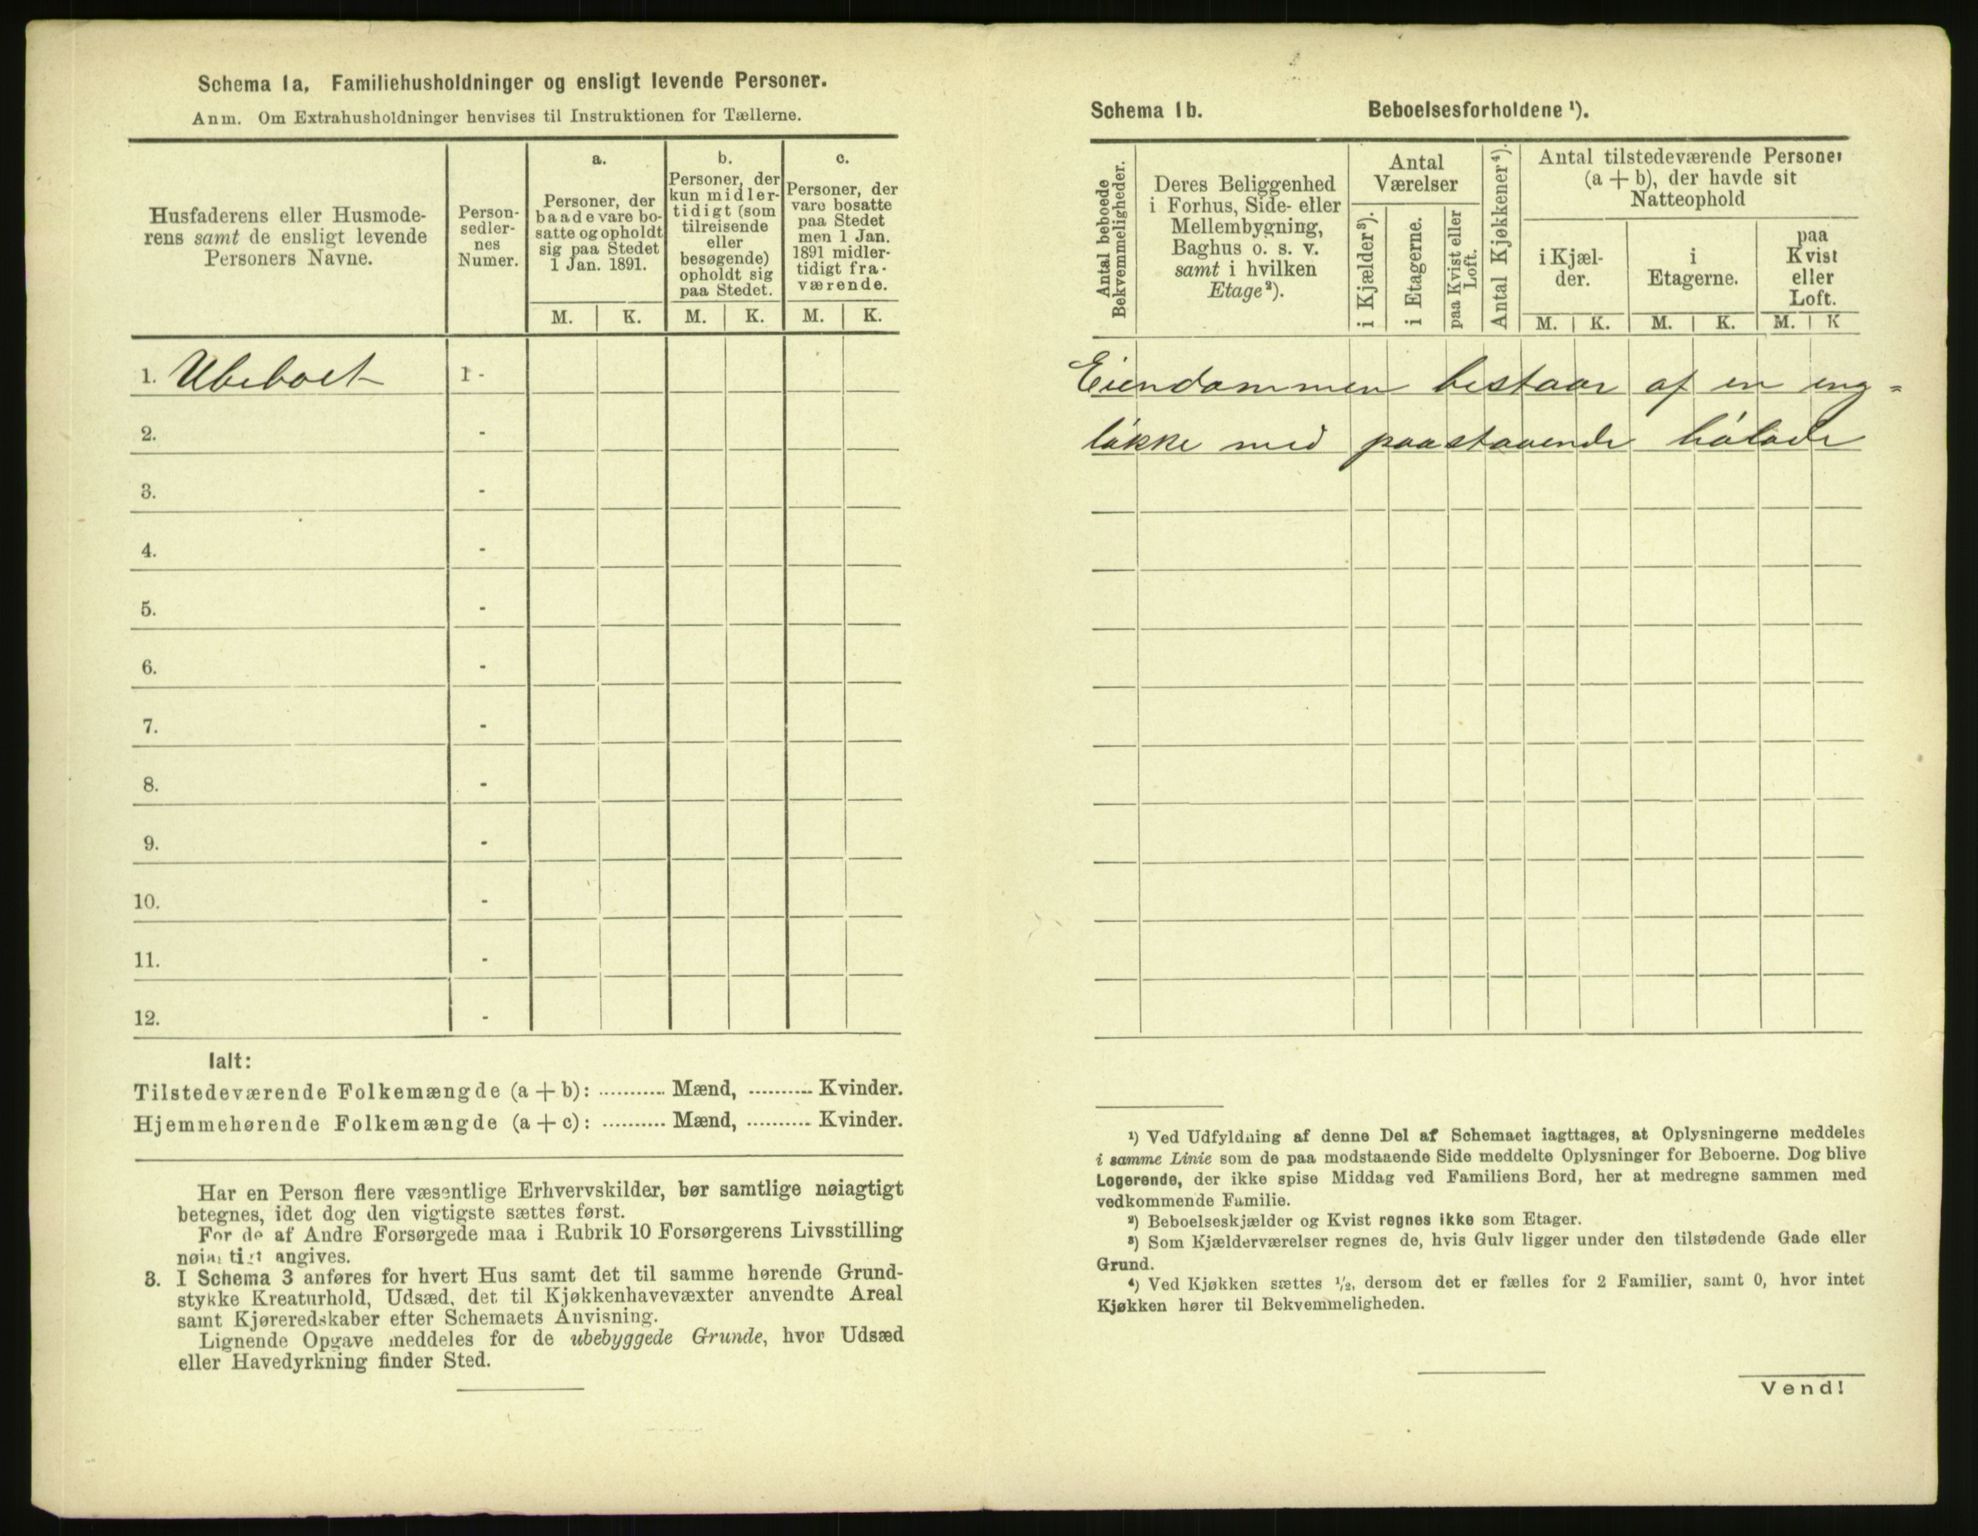 Schema 1a. Familiehusholdninger og ensligt levende Personer.
Anm. Om Extrahusholdninger henvises til Instruktionen for Tællerne.
Husfaderens eller Husmode-
rens samt de ensligt levende
Personers Navne.
Person-
sedler-
nes
Numer.
a.
Personer, der
baade vare bo-
satte og opholdt
sig paa Stedet
1 Jan. 1891.
b.
Personer, der
kun midler-
tidigt (som
tilreisende
eller
besøgende)
opholdt sig
paa Stedet.
c.
Personer, der
vare bosatte
paa Stedet
men 1 Jan.
1891 midler-
tidigt fra-
værende.
M. K. M. K. M. K.
1. Ubeboet 1 -
2. -
3. -
4. -
5. -
6. -
7. -
8. -
9. -
10. -
11. -
12. -
Ialt:
Tilstedeværende Folkemængde (a + b): .......... Mænd, .......... Kvinder.
Hjemmehørende Folkemængde (a + c): .......... Mænd, .......... Kvinder.
Har en Person flere væsentlige Erhvervskilder, bør samtlige nøiagtigt
betegnes, idet dog den vigtigste sættes først.
For de af Andre Forsørgede maa i Rubrik 10 Forsørgerens Livsstilling
nøiagtigt angives.
3. I Schema 3 anføres for hvert Hus samt det til samme hørende Grund-
stykke Kreaturhold, Udsæd, det til Kjøkkenhavevæxter anvendte Areal
samt Kjøreredskaber efter Schemaets Anvisning.
Lignende Opgave meddeles for de ubebyggede Grunde, hvor Udsæd
eller Havedyrkning finder Sted.
Schema 1b. Beboelsesforholdene ¹).
Antal beboede
Bekvemmeligheder.
Deres Beliggenhed
i Forhus, Side- eller
Mellembygning,
Baghus o. s. v.
samt i hvilken
Etage²).
Antal
Værelser
i Kjælder³).
i Etagerne.
paa Kvist eller
Loft.
Antal Kjøkkener⁴).
Antal tilstedeværende Personer
(a + b), der havde sit
Natteophold
i Kjæl-
der.
i
Etagerne.
paa
Kvist
eller
Loft.
M. K. M. K. M. K
Eiendommen bestaar af en eng=
løkke med paastaaende hølade
¹) Ved Udfyldning af denne Del af Schemaet iagttages, at Oplysningerne meddeles
i samme Linie som de paa modstaaende Side meddelte Oplysninger for Beboerne. Dog blive
Logerende, der ikke spise Middag ved Familiens Bord, her at medregne sammen med
vedkommende Familie.
²) Beboelseskjælder og Kvist regnes ikke som Etager.
³) Som Kjælderværelser regnes de, hvis Gulv ligger under den tilstødende Gade eller
Grund.
⁴) Ved Kjøkken sættes ½, dersom det er fælles for 2 Familier, samt 0, hvor intet
Kjøkken hører til Bekvemmeligheden.
Vend!